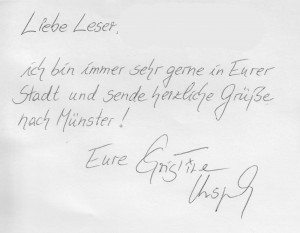 Liebe Leser,
ich bin immer sehr gerne in Eurer
Stadt und sende herzliche Grüße
nach Münster!
Eure